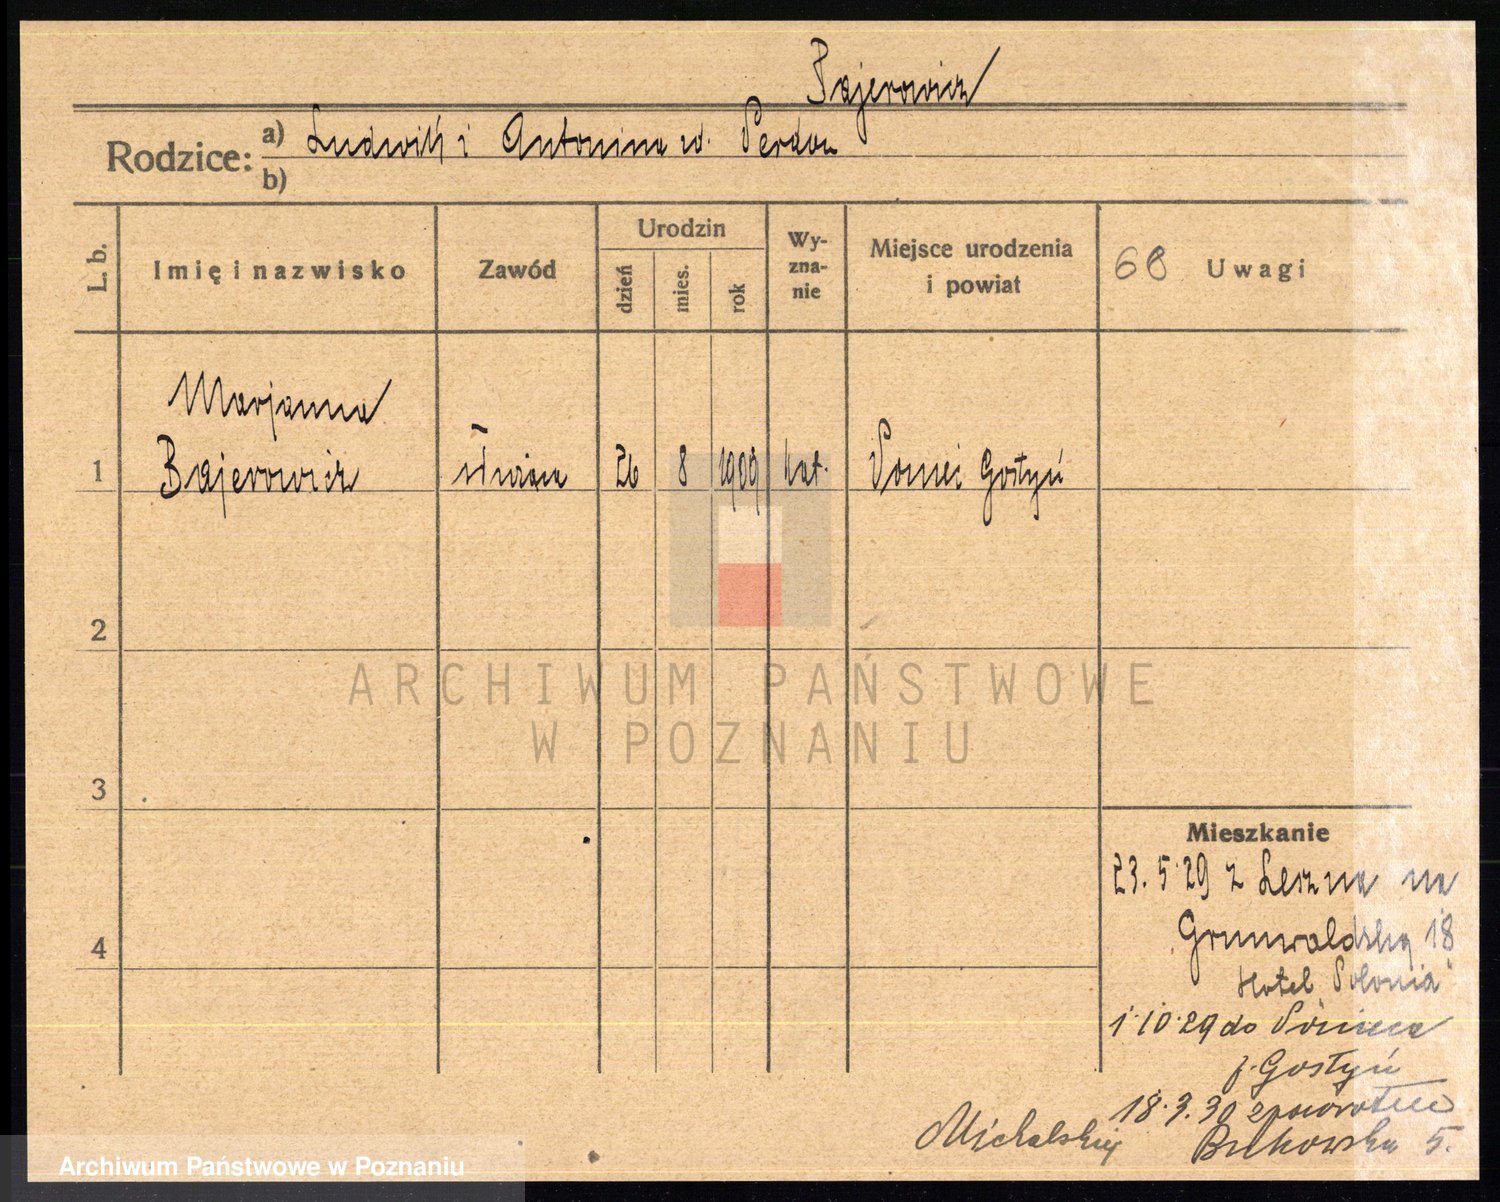 Bajerowicz
Rodzice: a) Ludwik i Antonina zd. Perdon
b)
L. b.
Imię i nazwisko
Zawód
Urodzin
dzień
mies.
rok
Wy-
zna-
nie
Miejsce urodzenia
i powiat
68 Uwagi
Marjanna
1 Bajerowicz służąca 26 8 1909 kat. Poniec Gostyń
2
3
4
ARCHIWUM PAŃSTWOWE
W POZNANIU
Mieszkanie
23.5.29 z Leszna na
Grunwaldzką 18
Hotel "Polonia"
1.10.29 do Ponieca
p. Gostyń
18.3.30 z powrotem
Michalskiej Bukowska 5.
Archiwum Państwowe w Poznaniu